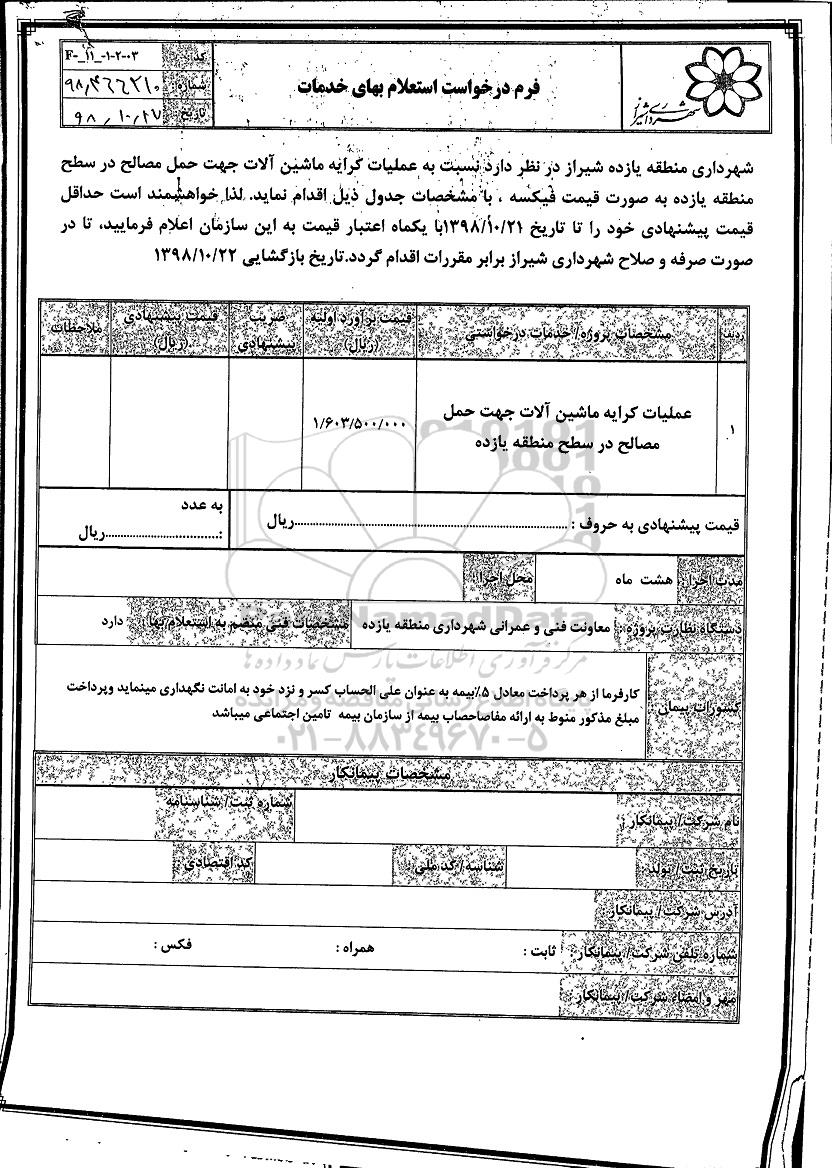 کد: F-_11_-1-2-03
شماره: ۹۸٫۴۶۶۲۱۰
تاریخ: ۹۸٫۱۰٫۱۷
فرم درخواست استعلام بهای خدمات
شهرداری شیراز
شهرداری منطقه یازده شیراز در نظر دارد نسبت به عملیات کرایه ماشین آلات جهت حمل مصالح در سطح
منطقه یازده به صورت قیمت فیکسه ، با مشخصات جدول ذیل اقدام نماید. لذا خواهشمند است حداقل
قیمت پیشنهادی خود را تا تاریخ ۱۳۹۸/۱۰/۲۱با یکماه اعتبار قیمت به این سازمان اعلام فرمایید، تا در
صورت صرفه و صلاح شهرداری شیراز برابر مقررات اقدام گردد.تاریخ بازگشایی ۱۳۹۸/۱۰/۲۲
ردیف مشخصات پروژه/ خدمات درخواستی قیمت برآورد اولیه (ریال) ضریب پیشنهادی قیمت پیشنهادی (ریال) ملاحظات
۱ عملیات کرایه ماشین آلات جهت حمل ۱/۶۰۳/۵۰۰/۰۰۰
مصالح در سطح منطقه یازده
قیمت پیشنهادی به حروف : ..........ریال به عدد
:..........ریال
مدت اجرا : هشت ماه محل اجرا :
دستگاه نظارت پروژه : معاونت فنی و عمرانی شهرداری منطقه یازده مشخصات فنی منضم به استعلام بها : دارد
کسورات پیمان : کارفرما از هر پرداخت معادل ۵٪بیمه به عنوان علی الحساب کسر و نزد خود به امانت نگهداری مینماید وپرداخت
مبلغ مذکور منوط به ارائه مفاصاحصاب بیمه از سازمان بیمه تامین اجتماعی میباشد
مشخصات پیمانکار
نام شرکت/ پیمانکار : شماره ثبت/ شناسنامه
تاریخ ثبت/ تولد : شناسه/ کد ملی : کد اقتصادی :
آدرس شرکت/ پیمانکار :
شماره تلفن شرکت/ پیمانکار : ثابت : همراه : فکس :
مهر و امضاء شرکت/ پیمانکار :
NamadData
مرکز فرآوری اطلاعات پارس نماد داده ها
۰۲۱-۸۸۳۴۹۶۷۰-۵